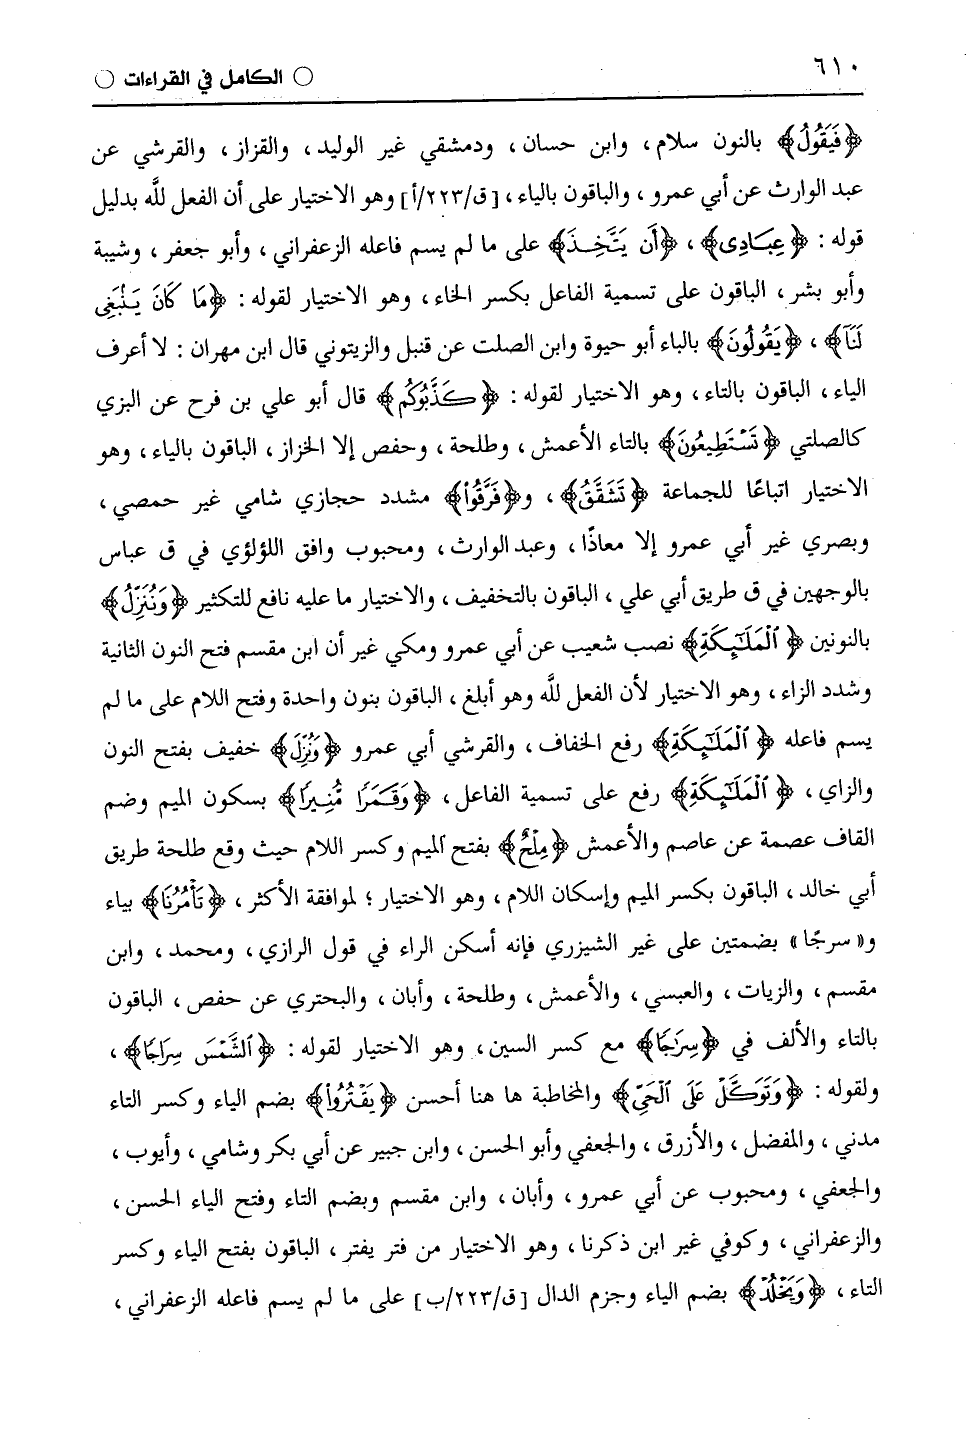 ٦١٠
○ الكامل في القراءات ○
﴿فَيَقُولُ﴾ بالنون سلام، وابن حسان، ودمشقي غير الوليد، والقزاز، والقرشي عن
عبد الوارث عن أبي عمرو، والباقون بالياء، [ق/٢٢٣/أ] وهو الاختيار على أن الفعل للَّه بدليل
قوله: ﴿عِبَادِى﴾، ﴿أَن يَتَّخِذَ﴾ على ما لم يسم فاعله الزعفراني، وأبو جعفر، وشيبة
وأبو بشر، الباقون على تسمية الفاعل بكسر الخاء، وهو الاختيار لقوله: ﴿مَا كَانَ يَنۢبَغِى
لَنَآ﴾، ﴿يَقُولُونَ﴾ بالياء أبو حيوة وابن الصلت عن قنبل والزيتوني قال ابن مهران: لا أعرف
الياء، الباقون بالتاء، وهو الاختيار لقوله: ﴿كَذَّبُوكُم﴾ قال أبو علي بن فرح عن البزي
كالصلتي ﴿تَسْتَطِيعُونَ﴾ بالتاء الأعمش، وطلحة، وحفص إلا الخزاز، الباقون بالياء، وهو
الاختيار اتباعًا للجماعة ﴿تَشَقَّقُ﴾، و﴿فَرَّقُواْ﴾ مشدد حجازي شامي غير حمصي،
وبصري غير أبي عمرو إلا معاذًا، وعبد الوارث، ومحبوب وافق اللؤلؤي في ق عباس
بالوجهين في ق طريق أبي علي، الباقون بالتخفيف، والاختيار ما عليه نافع للتكثير ﴿وَنُنَزِّلُ﴾
بالنونين ﴿ٱلْمَلَٰٓئِكَةِ﴾ نصب شعيب عن أبي عمرو ومكي غير أن ابن مقسم فتح النون الثانية
وشدد الزاء، وهو الاختيار لأن الفعل للَّه وهو أبلغ، الباقون بنون واحدة وفتح اللام على ما لم
يسم فاعله ﴿ٱلْمَلَٰٓئِكَةِ﴾ رفع الخفاف، والقرشي أبي عمرو ﴿وَنُزِّلَ﴾ خفيف بفتح النون
والزاي، ﴿ٱلْمَلَٰٓئِكَةِ﴾ رفع على تسمية الفاعل، ﴿وَقَمَرًا مُّنِيرًا﴾ بسكون الميم وضم
القاف عصمة عن عاصم والأعمش ﴿مِلْحٌ﴾ بفتح الميم وكسر اللام حيث وقع طلحة طريق
أبي خالد، الباقون بكسر الميم وإسكان اللام، وهو الاختيار؛ لموافقة الأكثر، ﴿تَأْمُرُنَا﴾ بياء
و«سرجًا» بضمتين على غير الشيزري فإنه أسكن الراء في قول الرازي، ومحمد، وابن
مقسم، والزيات، والعبسي، والأعمش، وطلحة، وأبان، والبحتري عن حفص، الباقون
بالتاء والألف في ﴿سِرَٰجًا﴾ مع كسر السين، وهو الاختيار لقوله: ﴿ٱلشَّمْسَ سِرَاجًا﴾،
ولقوله: ﴿وَتَوَكَّلْ عَلَى ٱلْحَيِّ﴾ والمخاطبة ها هنا أحسن ﴿يَقْتُرُواْ﴾ بضم الياء وكسر التاء
مدني، والمفضل، والأزرق، والجعفي وأبو الحسن، وابن جبير عن أبي بكر وشامي، وأيوب،
والجعفي، ومحبوب عن أبي عمرو، وأبان، وابن مقسم وبضم التاء وفتح الياء الحسن،
والزعفراني، وكوفي غير ابن ذكرنا، وهو الاختيار من فتر يفتر، الباقون بفتح الياء وكسر
التاء، ﴿وَيَخْلُدْ﴾ بضم الياء وجزم الدال [ق/٢٢٣/ب] على ما لم يسم فاعله الزعفراني،